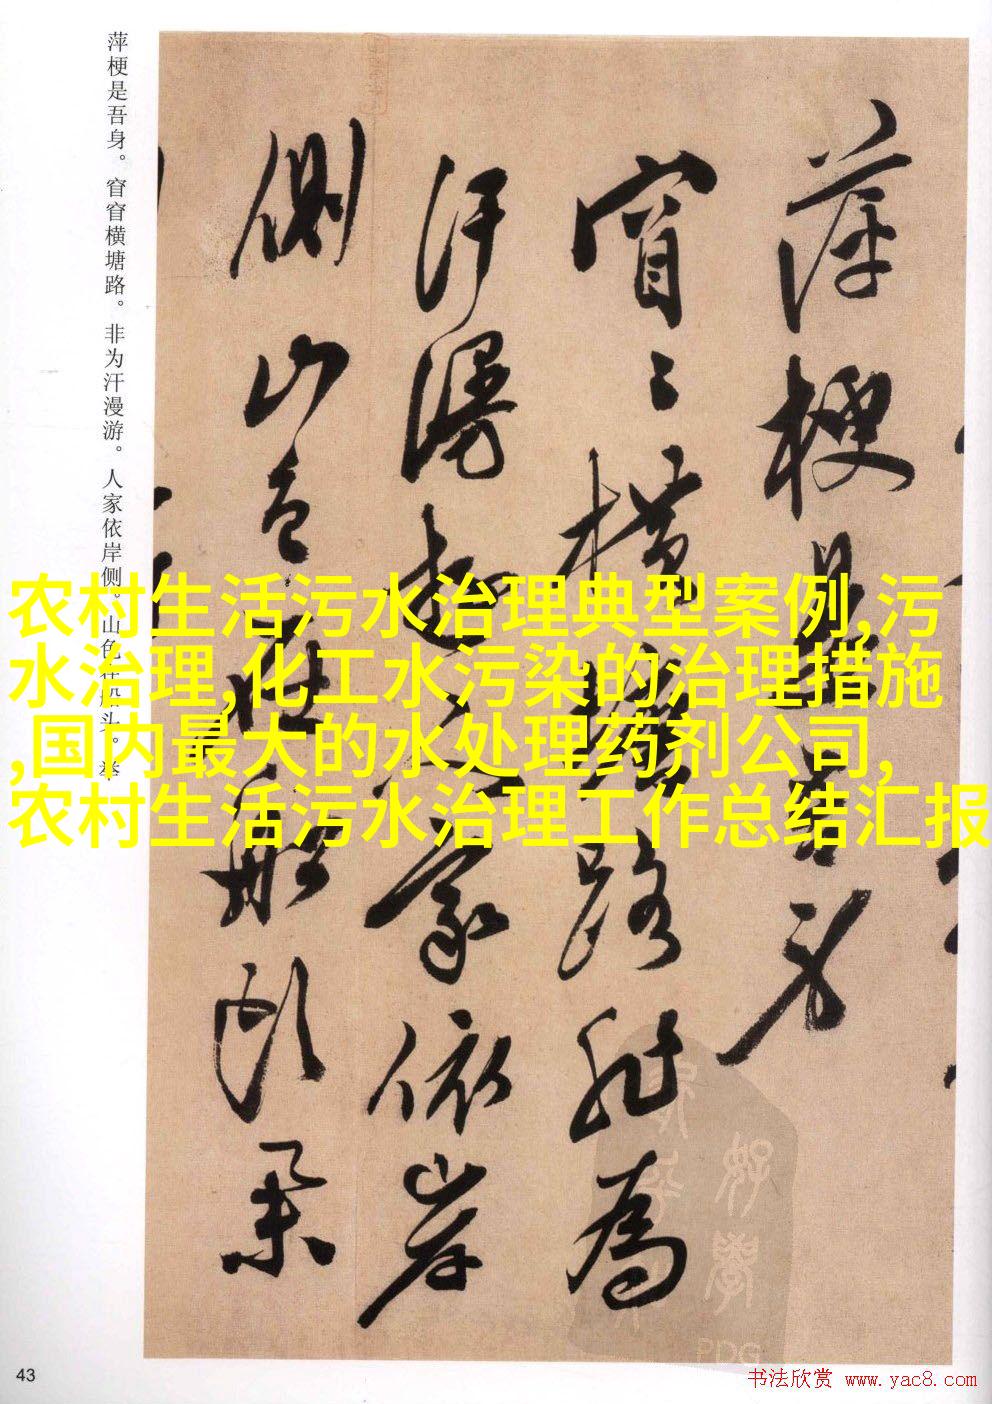 萍梗是吾身
窅〻橫塘路非為
汗漫遊人家依岸
側山色在船頭
萍梗是吾身。窅窅横塘路。非为汗漫游。人家依岸侧。山色在船头。
农村生活污水治理典型案例,污
水治理,化工水污染的治理措施
,国内最大的水处理药剂公司,
农村生活污水治理工作总结汇报
PDG
43
书法欣赏 www.yac8.com